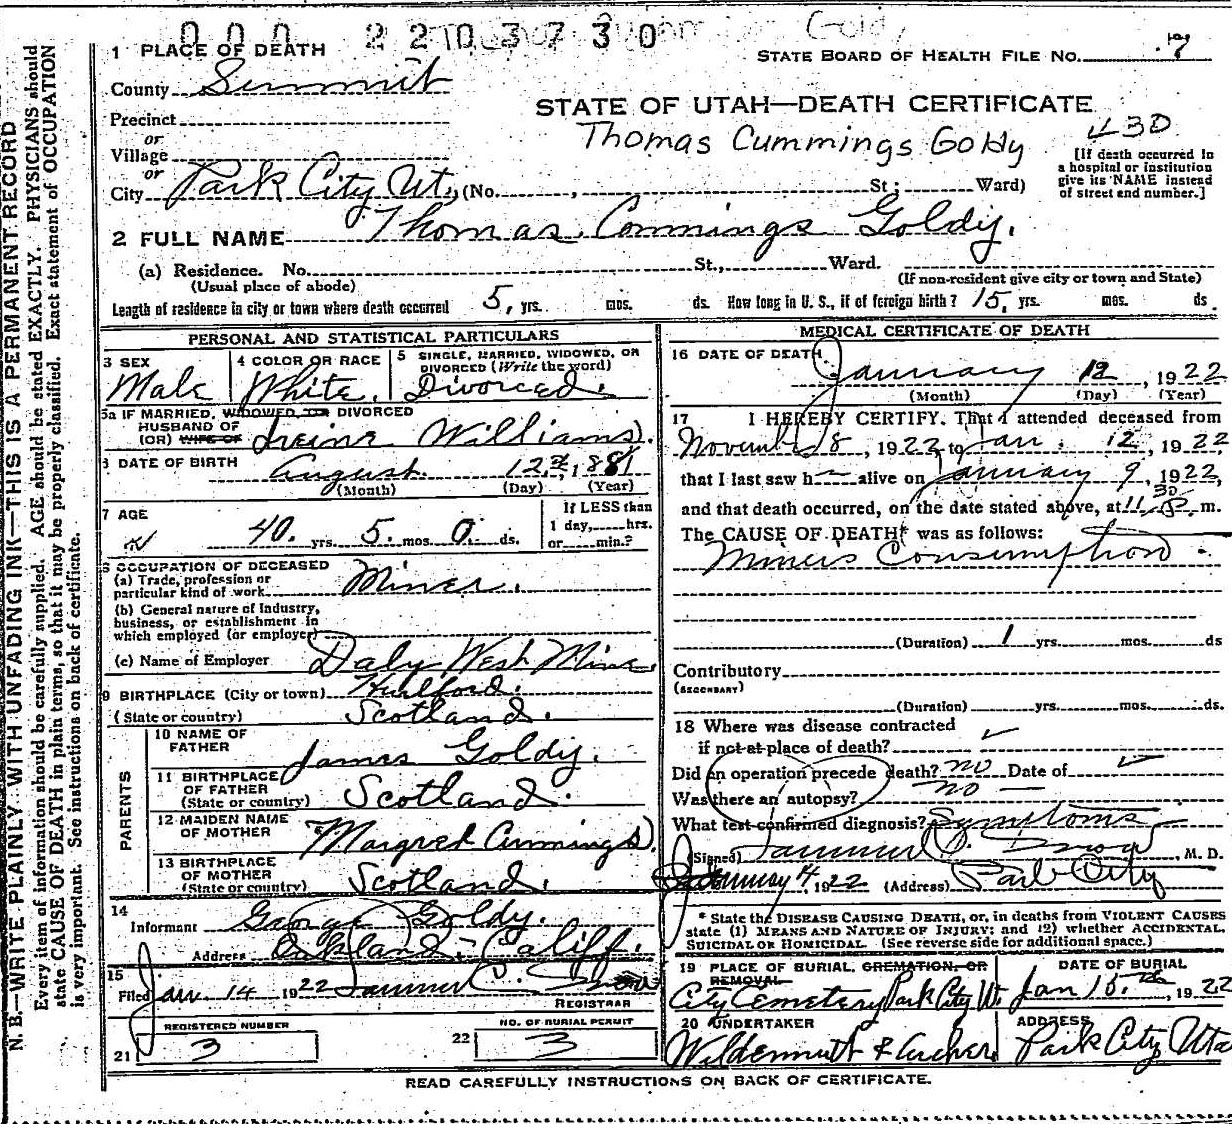 000 220 3730
1 PLACE OF DEATH
STATE BOARD OF HEALTH FILE No. 7
County Summit
STATE OF UTAH—DEATH CERTIFICATE
Precinct
Thomas Cummings Goldy
or
Village
or
City Park City Ut. (No. , St ; Ward)
[If death occurred in
a hospital or institution
give its NAME instead
of street and number.]
2 FULL NAME Thomas Commings Goldy.
(a) Residence. No. St., Ward.
(Usual place of abode) (If non-resident give city or town and State)
Length of residence in city or town where death occurred 5, yrs. mos. ds. How long in U. S., if of foreign birth? 15, yrs. mos. ds.
PERSONAL AND STATISTICAL PARTICULARS
3 SEX Male
4 COLOR OR RACE White.
5 SINGLE, MARRIED, WIDOWED, OR
DIVORCED (Write the word)
Divorced.
5a IF MARRIED, WIDOWED, OR DIVORCED
HUSBAND OF
(OR) WIFE OF Williams.
6 DATE OF BIRTH August 12, 1881
(Month) (Day) (Year)
7 AGE 40. yrs. 5. mos. 0. ds.
If LESS than
1 day, hrs.
or min.?
8 OCCUPATION OF DECEASED
(a) Trade, profession or
particular kind of work Miner.
(b) General nature of Industry,
business, or establishment in
which employed (or employer)
(c) Name of Employer Daly West Mine.
9 BIRTHPLACE (City or town) Hurlford.
(State or country) Scotland.
PARENTS
10 NAME OF
FATHER James Goldy.
11 BIRTHPLACE
OF FATHER
(State or country) Scotland.
12 MAIDEN NAME
OF MOTHER Margret Cummings
13 BIRTHPLACE
OF MOTHER
(State or country) Scotland.
14
Informant George Goldy.
Address Oakland - Califf.
15
Filed Jan. 14 1922
REGISTRAR
REGISTERED NUMBER
21 3
NO. OF BURIAL PERMIT
22 3
MEDICAL CERTIFICATE OF DEATH
16 DATE OF DEATH
January 12, 1922
(Month) (Day) (Year)
17 I HEREBY CERTIFY. That I attended deceased from
November 8, 1922 to Jan. 12, 1922
that I last saw h alive on January 9, 1922,
and that death occurred, on the date stated above, at 11 30 P. m.
The CAUSE OF DEATH* was as follows:
Miners Consumption.
(Duration) 1 yrs. mos. ds
Contributory
(SECONDARY)
(Duration) yrs. mos. ds.
18 Where was disease contracted
if not at place of death?
Did an operation precede death? no Date of
Was there an autopsy? no
What test confirmed diagnosis? Symptoms
(Signed) M. D.
1922 (Address) Park City
* State the DISEASE CAUSING DEATH, or, in deaths from VIOLENT CAUSES
state (1) MEANS AND NATURE OF INJURY; and (2) whether ACCIDENTAL,
SUICIDAL OR HOMICIDAL. (See reverse side for additional space.)
19 PLACE OF BURIAL, CREMATION, OR
REMOVAL
City Cemetery Park City Ut.
DATE OF BURIAL
Jan 15th, 1922
20 UNDERTAKER
Wildemuth & Archer.
ADDRESS
Park City, Uta
READ CAREFULLY INSTRUCTIONS ON BACK OF CERTIFICATE.
N. B.—WRITE PLAINLY WITH UNFADING INK—THIS IS A PERMANENT RECORD
Every item of information should be carefully supplied. AGE should be stated EXACTLY. PHYSICIANS should
state CAUSE OF DEATH in plain terms, so that it may be properly classified. Exact statement of OCCUPATION
is very important. See instructions on back of certificate.